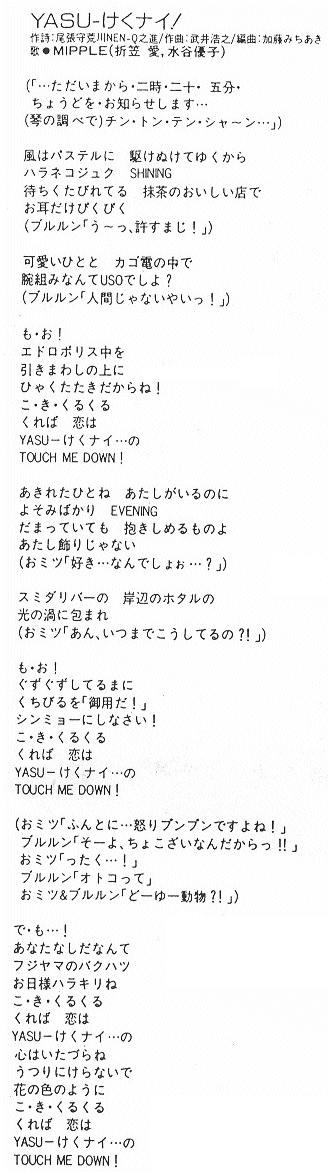 YASU−けくナイ!
作詩:尾張守荒川NEN-Q之進/作曲:武井浩之/編曲:加藤みちあき
歌●MIPPLE(折笠 愛,水谷優子)
(「…ただいまから・二時・二十・ 五分・
ちょうどを・お知らせします…
(琴の調べで)チン・トン・テン・シャ〜ン…」)
風はパステルに 駆けぬけてゆくから
ハラネコジュク SHINING
待ちくたびれてる 抹茶のおいしい店で
お耳だけぴくぴく
(ブルルン「う〜っ、許すまじ!」)
可愛いひとと カゴ電の中で
腕組みなんてUSOでしょ?
(ブルルン「人間じゃないやいっ!」)
も・お!
エドロポリス中を
引きまわしの上に
ひゃくたたきだからね!
こ・き・くるくる
くれば 恋は
YASU−けくナイ…の
TOUCH ME DOWN!
あきれたひとね あたしがいるのに
よそみばかり EVENING
だまっていても 抱きしめるものよ
あたし飾りじゃない
(おミツ「好き…なんでしょぉ…?」)
スミダリバーの 岸辺のホタルの
光の渦に包まれ
(おミツ「あん、いつまでこうしてるの?!」)
も・お!
ぐずぐずしてるまに
くちびるを「御用だ!」
シンミョーにしなさい!
こ・き・くるくる
くれば 恋は
YASU−けくナイ…の
TOUCH ME DOWN!
(おミツ「ふんとに…怒りプンプンですよね!」
ブルルン「そーよ、ちょこざいなんだからっ!!」
おミツ「ったく…!」
ブルルン「オトコって」
おミツ&ブルルン「どーゆー動物?!」)
で・も…!
あなたなしだなんて
フジヤマのバクハツ
お日様ハラキリね
こ・き・くるくる
くれば 恋は
YASU−けくナイ…の
心はいたづらね
うつりにけらないで
花の色のように
こ・き・くるくる
くれば 恋は
YASU−けくナイ…の
TOUCH ME DOWN!